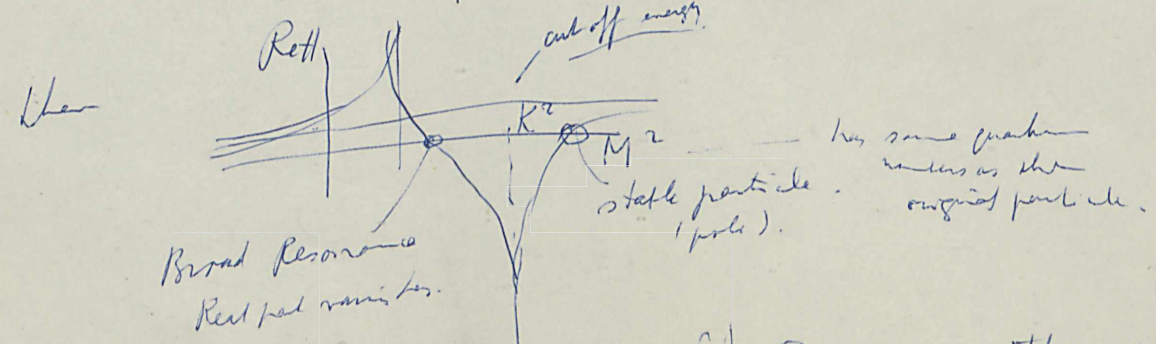 cut off energy
Re H
then
K²
M²
has same quantum
numbers as the
original particle.
stable particle.
(pole).
Broad Resonance
Real part vanishes.